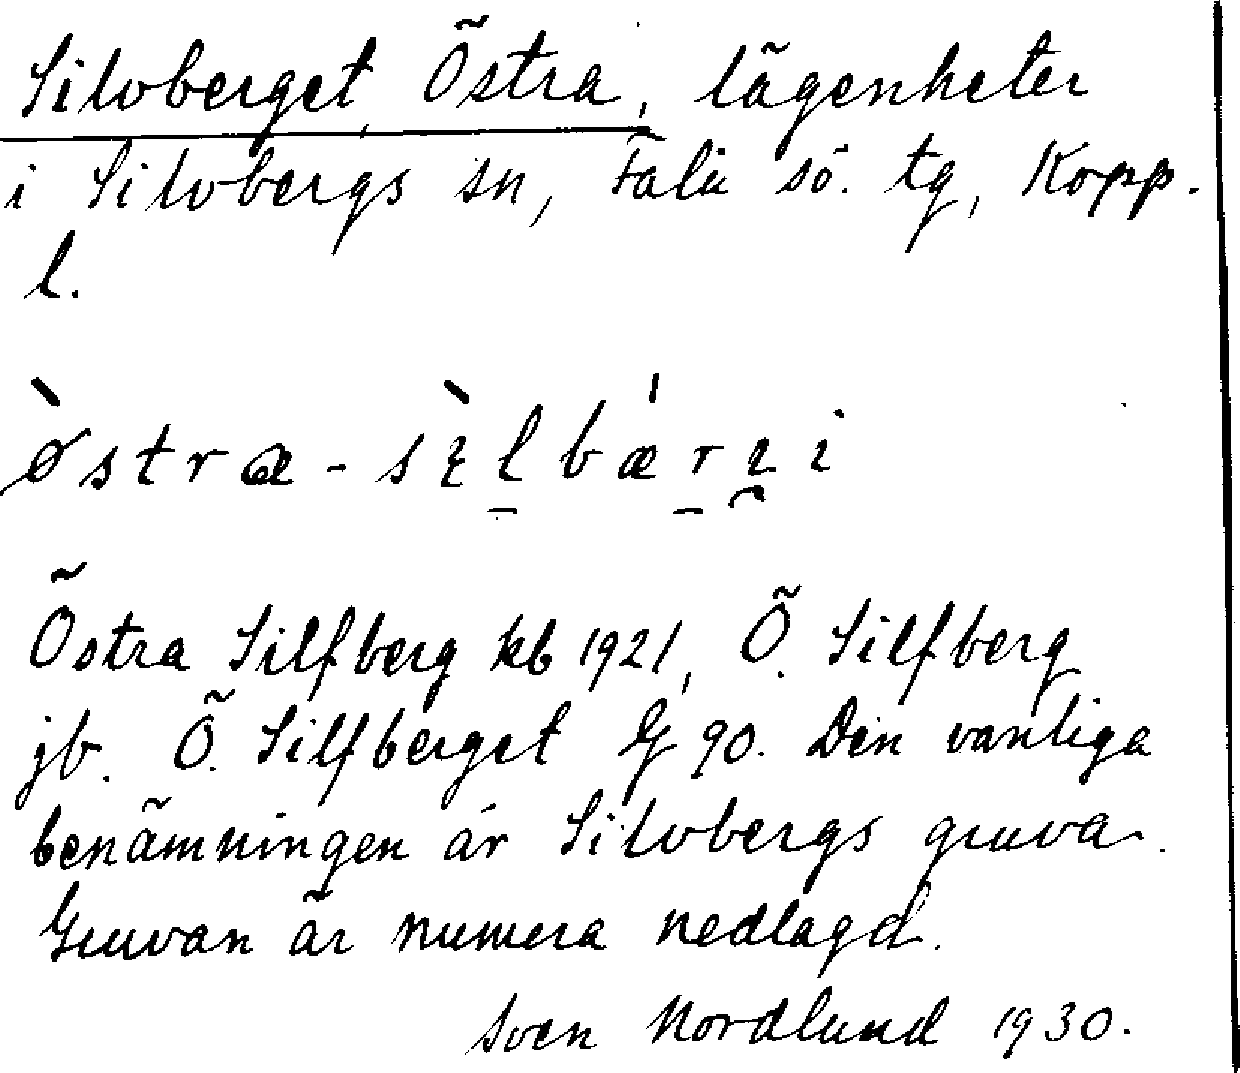 Silvberget, Östra, lägenheter
i Silvbergs sn, Falu sö. tg, Kopp.
l.
Östra Silfberg kb 1921, Ö. Silfberg
jb. Ö. Silfberget G 90. Den vanliga
benämningen är Silvbergs gruva.
Gruvan är numera nedlagd.
Sven Nordlund 1930.